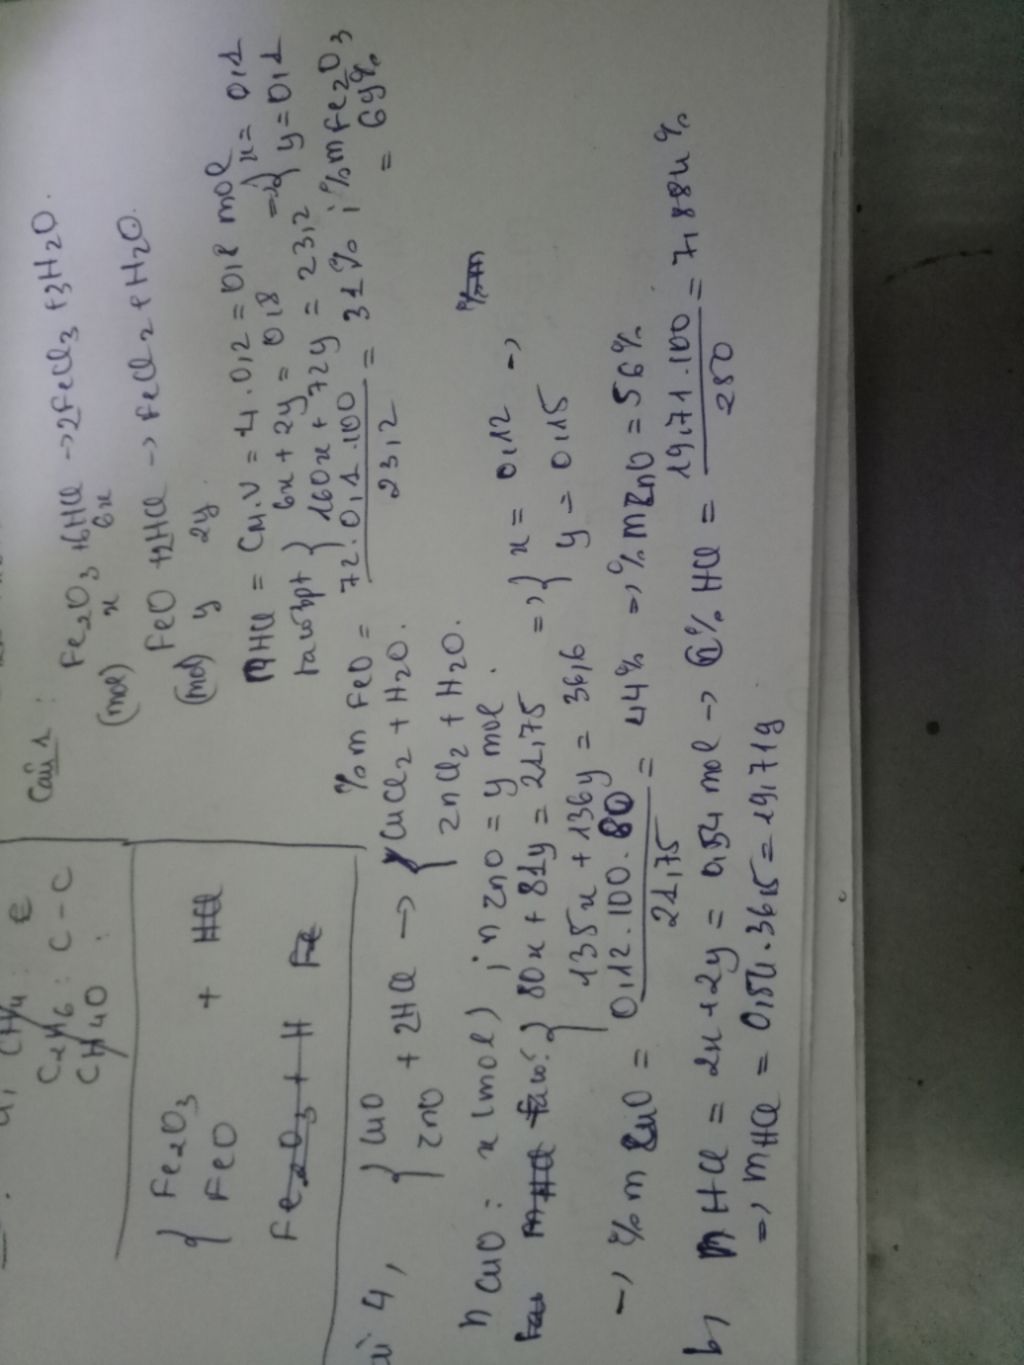 C₂H₆ : C - C
CH₄O :
Câu 1 :
Fe₂O₃ +6HCl -> 2FeCl₃ +3H₂O.
(mol) x 6x
FeO +2HCl -> FeCl₂ + H₂O.
(mol) y 2y
{ Fe₂O₃
FeO + HCl
Fe₂O₃ + H Fe
nHCl = CM.V = 4.0,2 = 0,8 mol
ta có hpt { 6x + 2y = 0,8 => { x = 0,1
160x + 72y = 23,2 y = 0,1
%m FeO = 72.0,1.100 / 23,2 = 31% ; %mFe₂O₃ = 69%
4, { CuO
ZnO + 2HCl -> { CuCl₂ + H₂O.
ZnCl₂ + H₂O.
n CuO : x (mol) ; n ZnO = y mol.
ta có: { 80x + 81y = 21,75 => { x = 0,12 ->
135x + 136y = 36,6 y = 0,15
-> %m CuO = 0,12.100.80 / 21,75 = 44% => % mZnO = 56%
b, n HCl = 2x + 2y = 0,54 mol -> C% HCl = 19,71.100 / 250 = 7,884%
=> mHCl = 0,54.36,5 = 19,71g